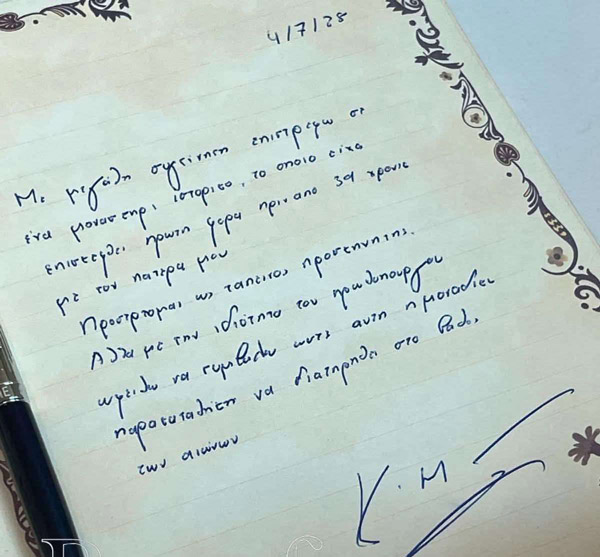 4/7/25
Με μεγάλη συγκίνηση επιστρέφω σε
ένα μοναστήρι ιστορικό, το οποίο είχα
επισκεφθεί πρώτη φορά πριν από 39 χρόνια
με τον πατέρα μου
Προσέρχομαι ως ταπεινός προσκυνητής.
Αλλά με την ιδιότητα του πρωθυπουργού
οφείλω να συμβάλω ώστε αυτή η μοναδική
παρακαταθήκη να διατηρηθεί στο βάθος
των αιώνων
Κ. Μ